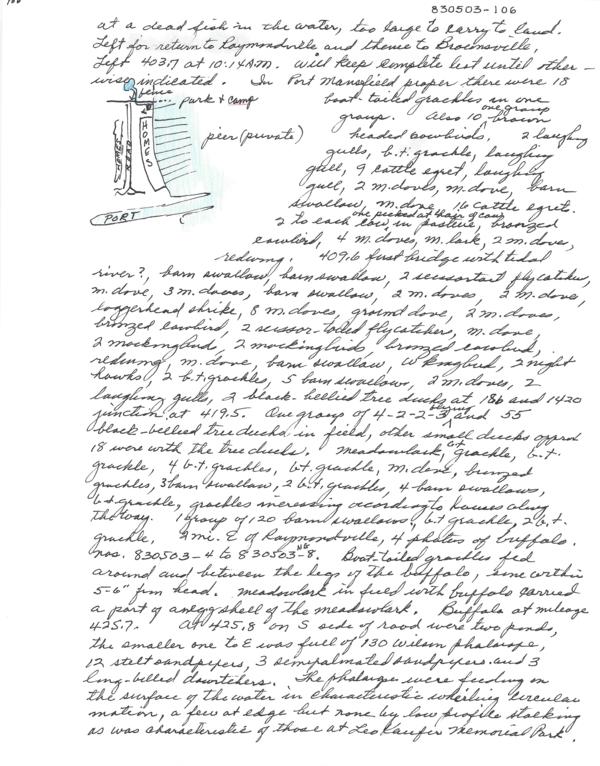 830503-106
at a dead fish in the water, too large to carry to land.
Left for return to Raymondville and thence to Brownsville,
Left 403.7 at 10:14 AM. Will keep complete list until other-
wise indicated. In Port Mansfield proper there were 18
fence
park & camp
boat-tailed grackles in one
group. Also 10 one group brown
HOMES
pier (private)
headed cowbirds. 2 laughing
gulls, b.t. grackle, laughing
gull, 9 cattle egret, laughing
gull, 2 m. doves, m. dove, barn
swallow, m. dove, 16 cattle egrets.
PORT
2 to each cow, one picked at hair of cow, in pasture, bronzed
cowbird, 4 m. doves, m. lark, 2 m. dove,
redwing. 409.6 first bridge with tidal
river?, barn swallow, barn swallow, 2 scissortail flycatcher,
m. dove, 3 m. doves, barn swallow, 2 m. doves, 2 m. dove,
loggerhead shrike, 8 m. doves, ground dove, 2 m. doves,
bronzed cowbird, 2 scissor-tailed flycatchers, m. dove,
2 mockingbird, 2 mockingbirds, bronzed cowbird,
redwing, m. dove, barn swallow, W kingbird, 2 night
hawks, 2 b.t. grackles, 5 barn swallows, 2 m. doves, 2
laughing gulls, 2 black-bellied tree ducks at 186 and 1420
junction at 419.5. One group of 4-2-2-3 and 55
black-bellied tree ducks in field, other small ducks approx
18 were with the tree ducks. Meadowlark, bt grackle, b.t.
grackle, 4 b-t. grackles, bt. grackle, m. dove, bronzed
grackles, 3 barn swallow, 2 b.t. grackles, 4 barn swallows,
b.t. grackle, grackles increasing according to houses along
the way. 1 group of 120 barn swallows, b.t grackle, 2 b.t.
grackle, 9 mi. E of Raymondville, 4 photos of buffalo.
nos. 830503-4 to 830503-8. Boat-tailed grackles fed
around and between the legs of the buffalo, some within
5-6" from head. Meadowlark in field with buffalo carried
a part of an eggshell of the meadowlark. Buffalo at mileage
425.7. At 425.8 on S side of road were two ponds,
the smaller one to E was full of 130 Wilson phalarope,
12 stilt sandpipers, 3 semipalmated sandpipers and 3
long-billed dowitchers. The phalarope were feeding on
the surface of the water in characteristic whirling circular
motion, a few at edge but none by low profile stalking
as was characteristic of those at Leo Kaufer Memorial Park.